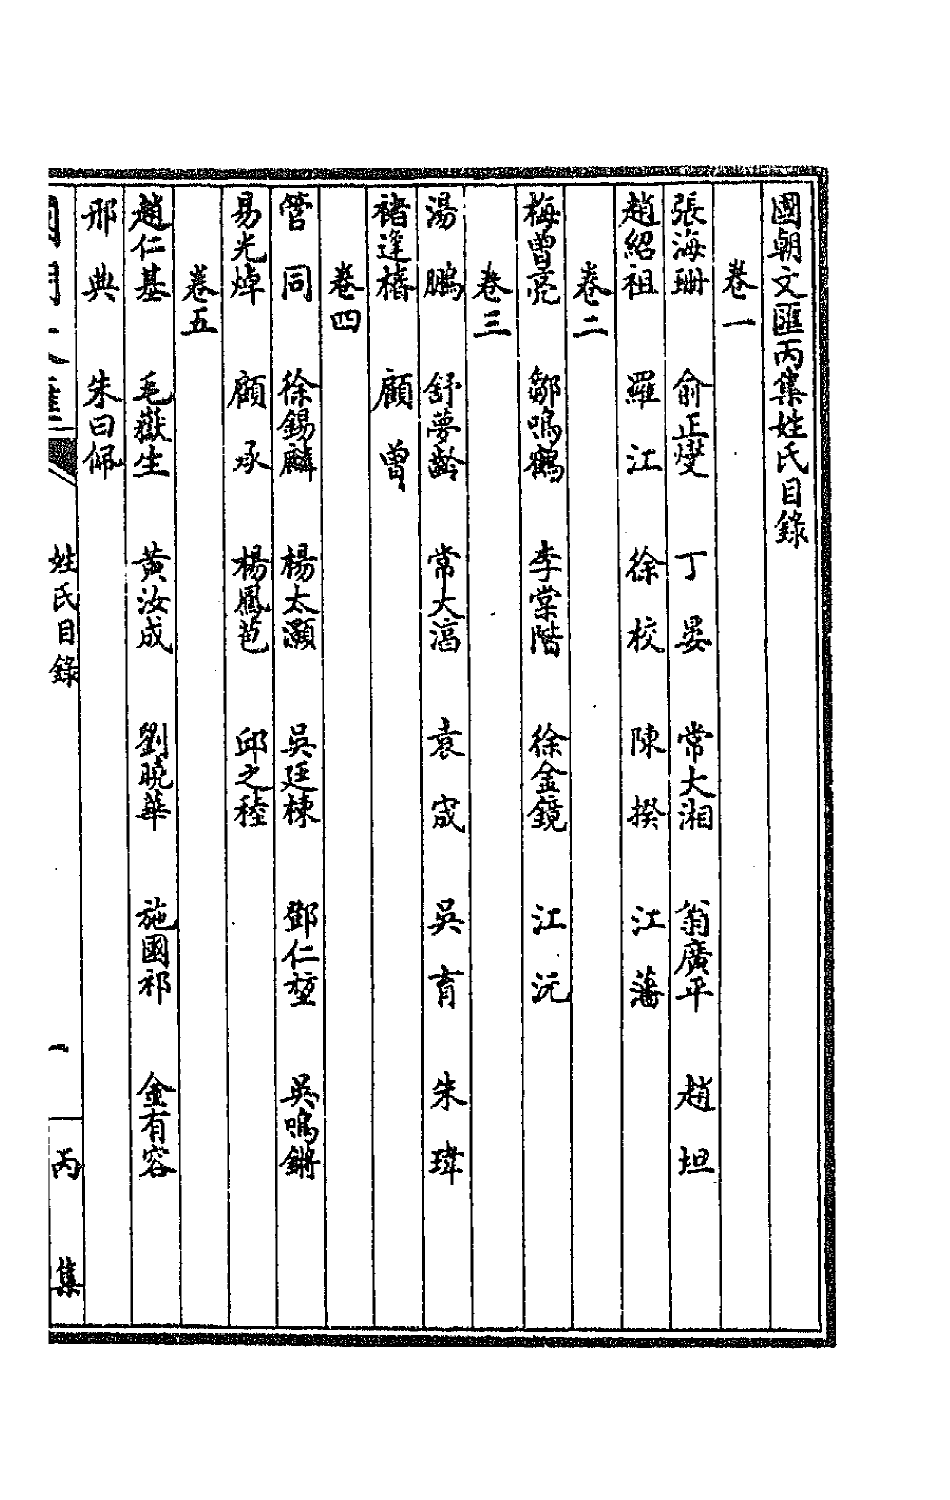 國朝文匯丙集姓氏目錄
卷一
張海珊 俞正燮 丁晏 常大湘 翁廣平 趙坦
趙紹祖 羅江 徐校 陳揆 江藩
卷二
梅曾亮 鄒鳴鶴 李棠階 徐金鏡 江沅
卷三
湯鵬 舒夢齡 常大淳 袁宬 吳育 朱瑋
褚逢椿 顧曾
卷四
管同 徐錫麟 楊太灝 吳廷棟 鄧仁堃 吳鳴鏘
易光焯 顧承 楊鳳苞 邱之稑
卷五
趙仁基 毛嶽生 黃汝成 劉曉華 施國祁 金有容
邢典 朱曰佩
姓氏目錄 一 丙集